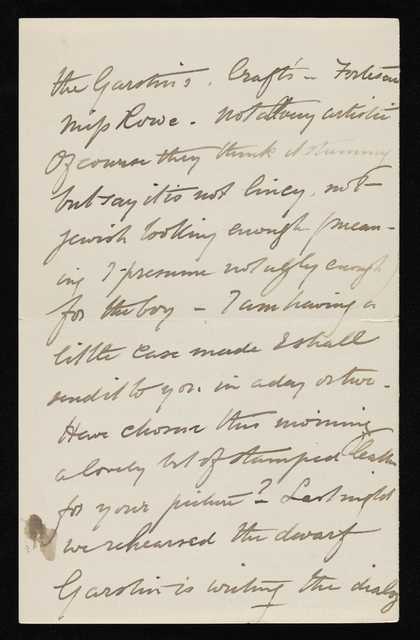 the Garstin's, Craft's – Fortescue
Miss Rowe. not a very artistic
Of course they think it stunning
but say it is not liney, not
Jewish looking enough (mean-
ing I presume not ugly enough)
for the boy – I am having a
little case made & shall
send it to you in a day or two.
Have chosen this morning
a lovely bit of stamped leather
for your picture? – Last night
we rehearsed the dwarf
Garstin is writing the dialog